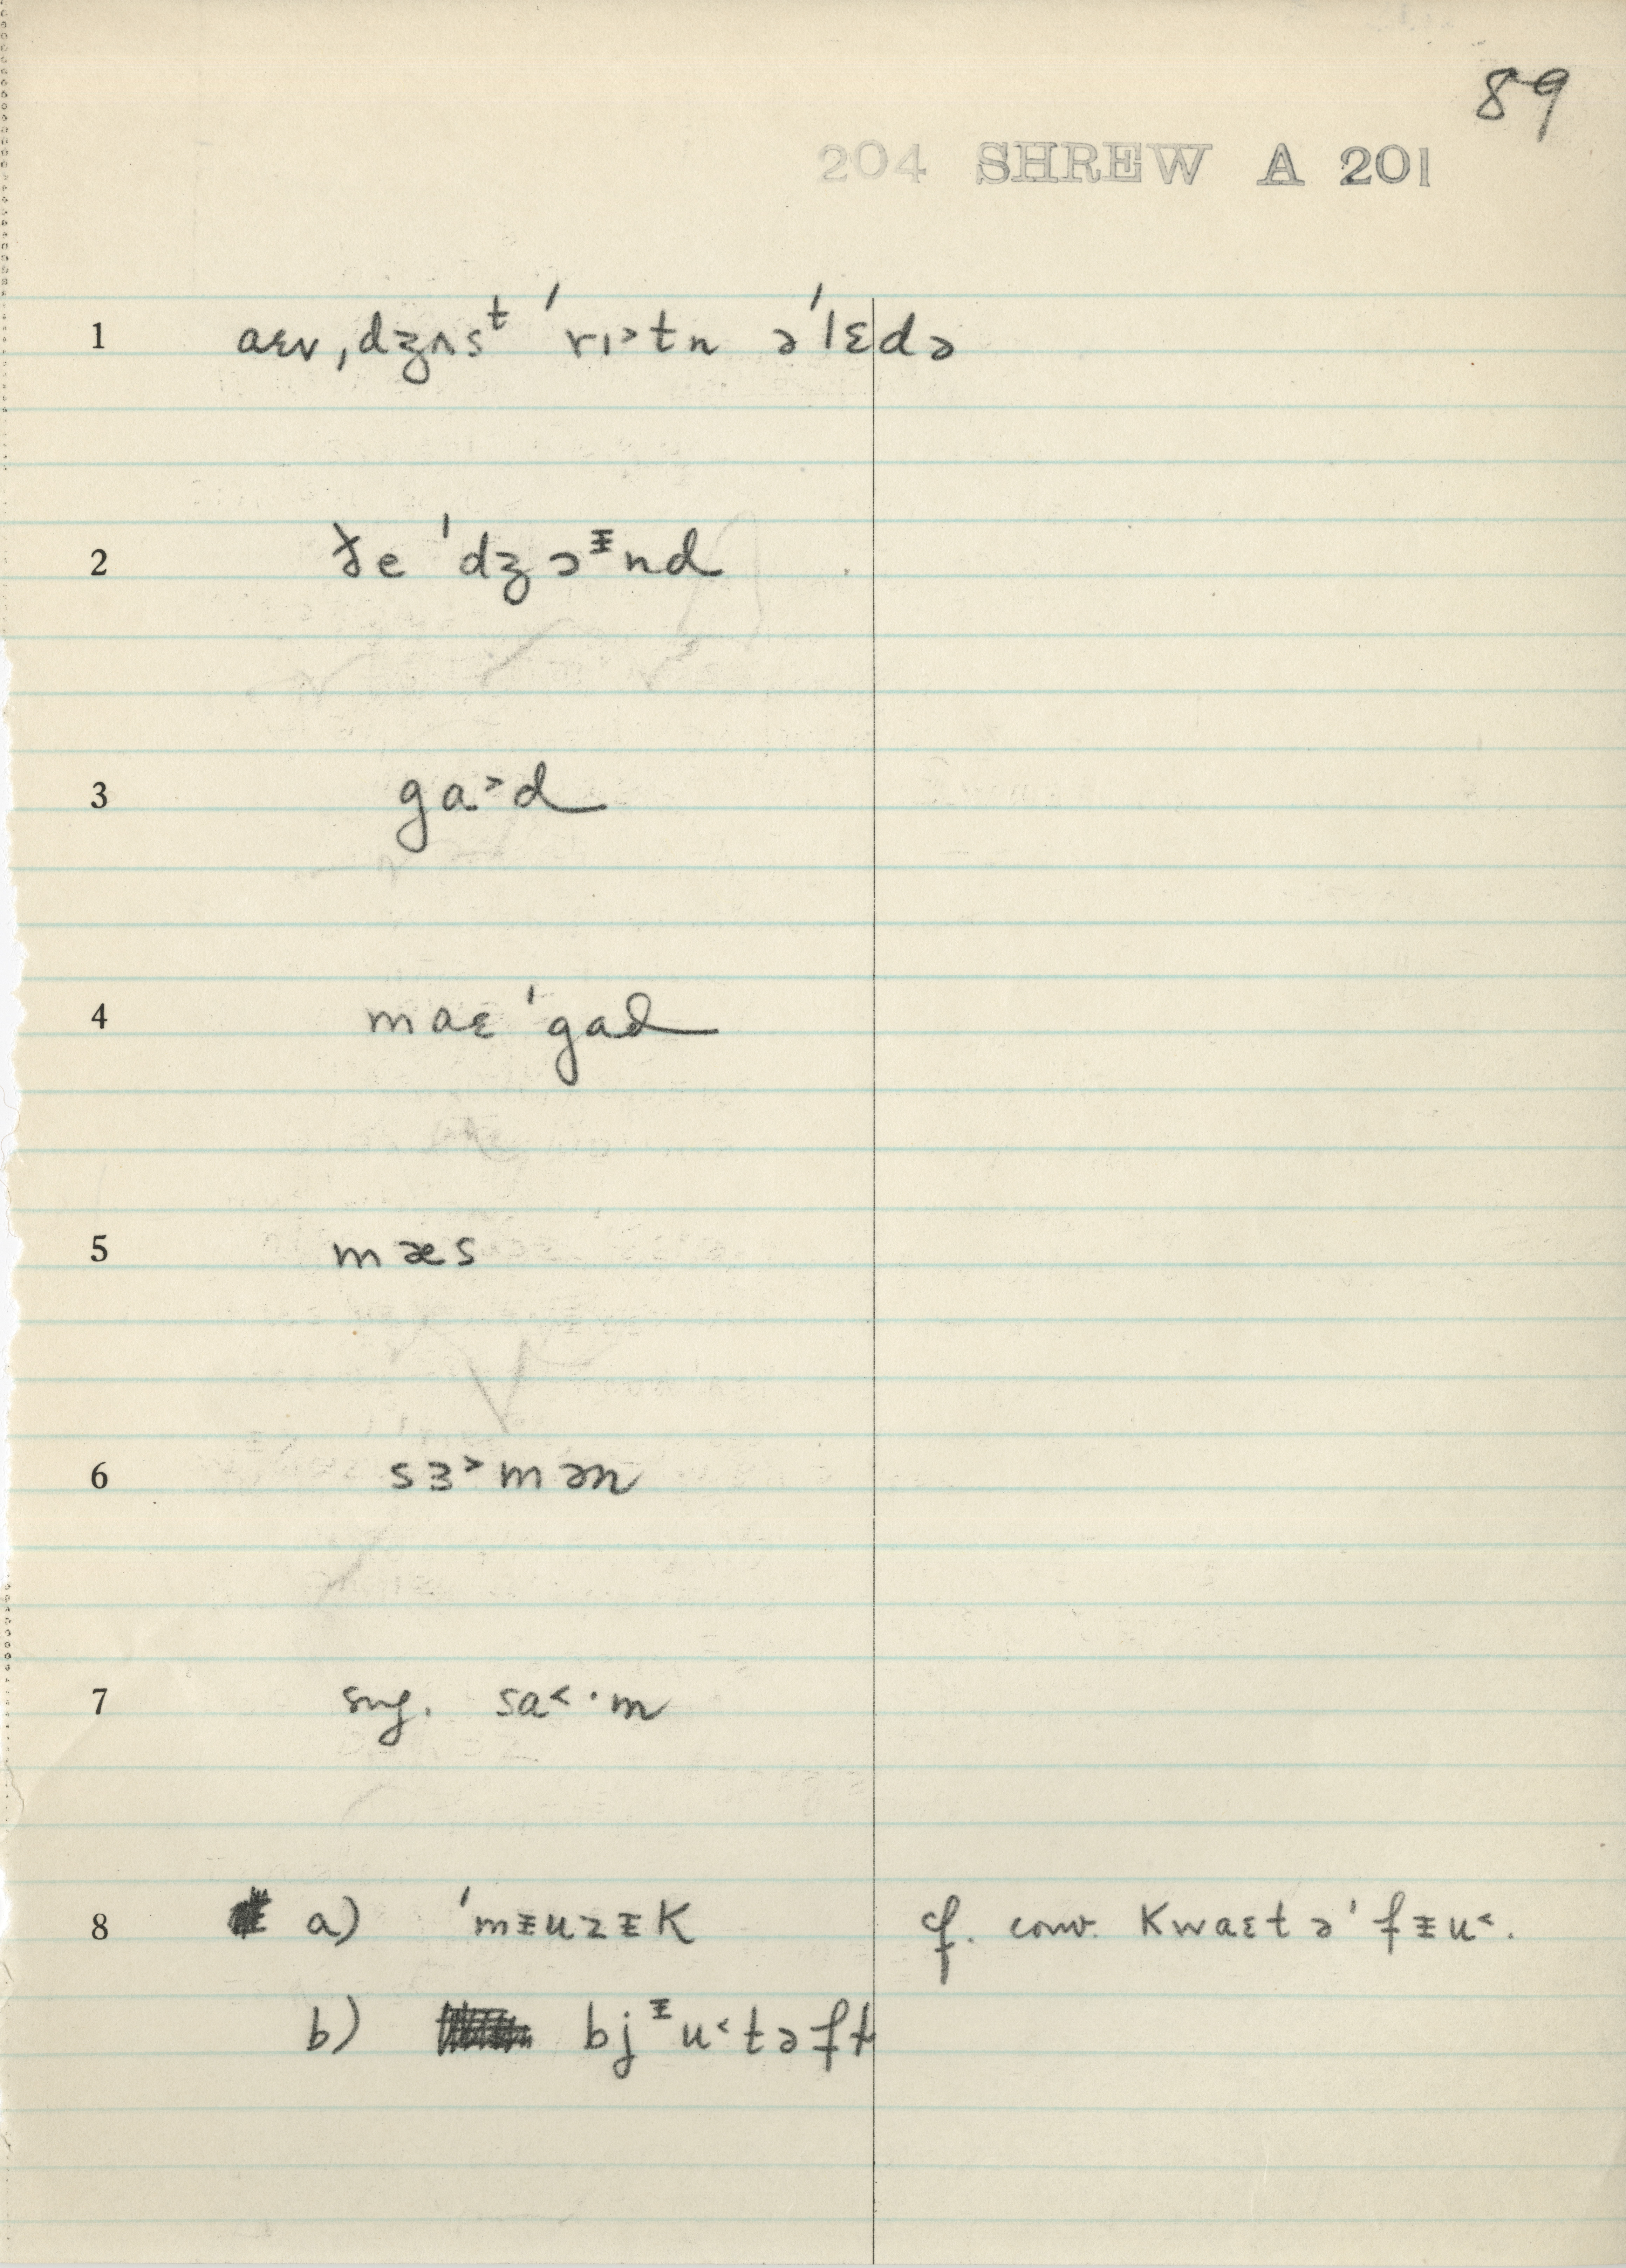 89
204 SHREW A 201
1 aɛv ˌdʒʌsᵗ ˈrɪ˃tn əˈlɛdə
2 ðe ˈdʒɔᵻnd
3 ga˃d
4 maɛ ˈgad
5 mæs
6 sɜ˃mən
7 sng. sa˂·m
8 a) ˈmᵻuzᵻk cf. conv. kwaɛt əˈfᵻu˂.
b) bjᵻu˂təfɫ